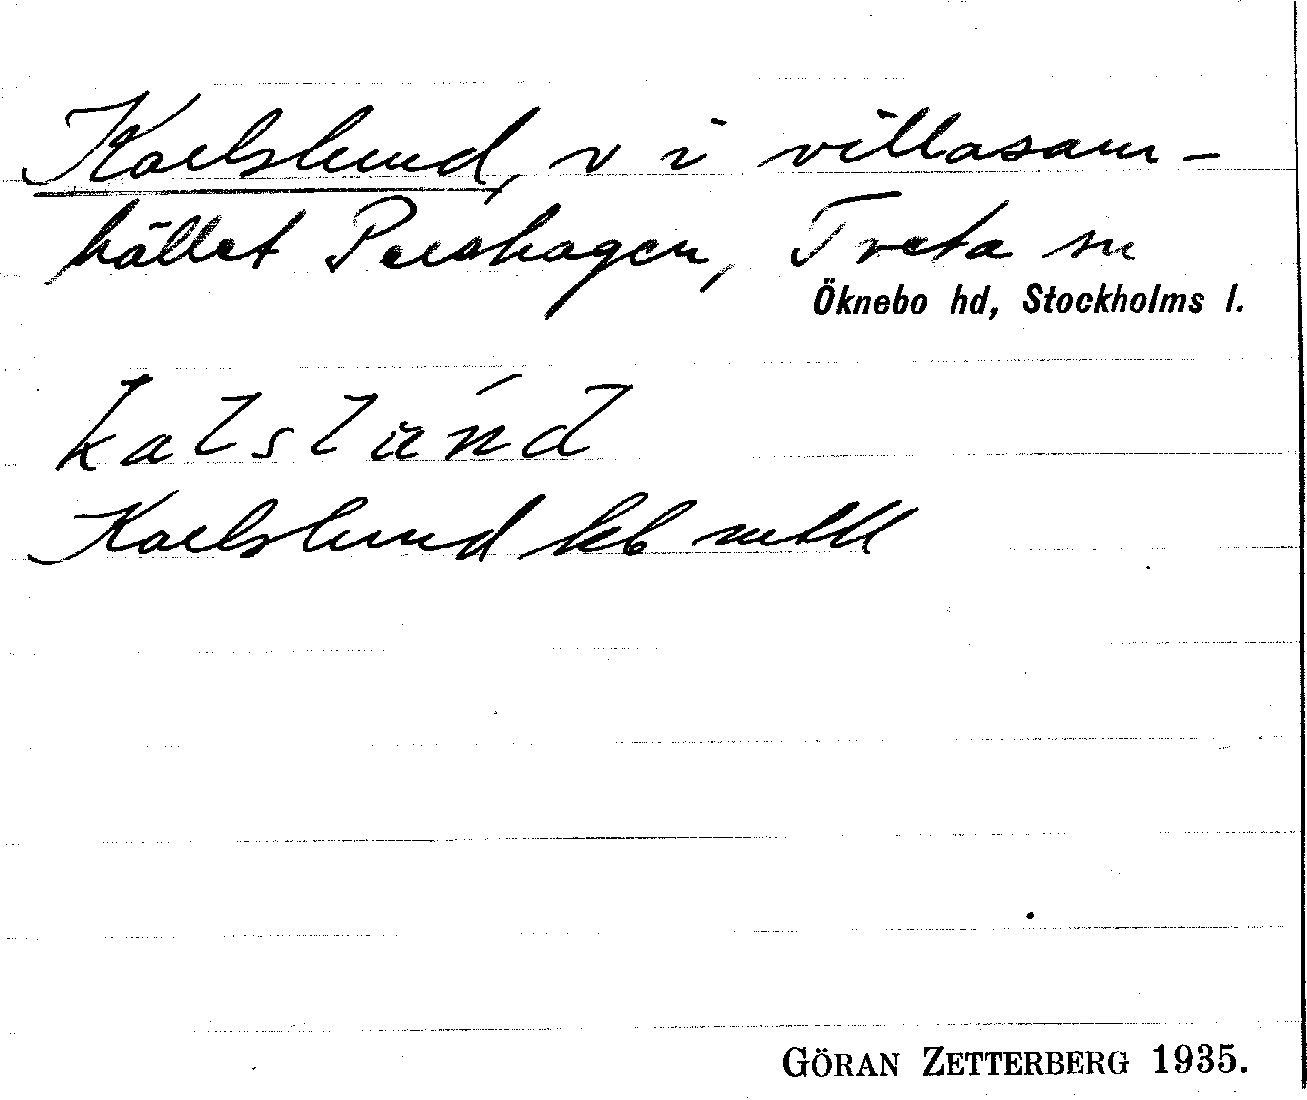 Karlslund, v i villasam-
hället Pershagen, Tveta sn
Öknebo hd, Stockholms l.
kalslúnd
Karlslund
GÖRAN ZETTERBERG 1935.